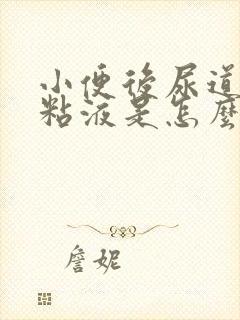 小便後尿道
粘液是怎麼
詹妮